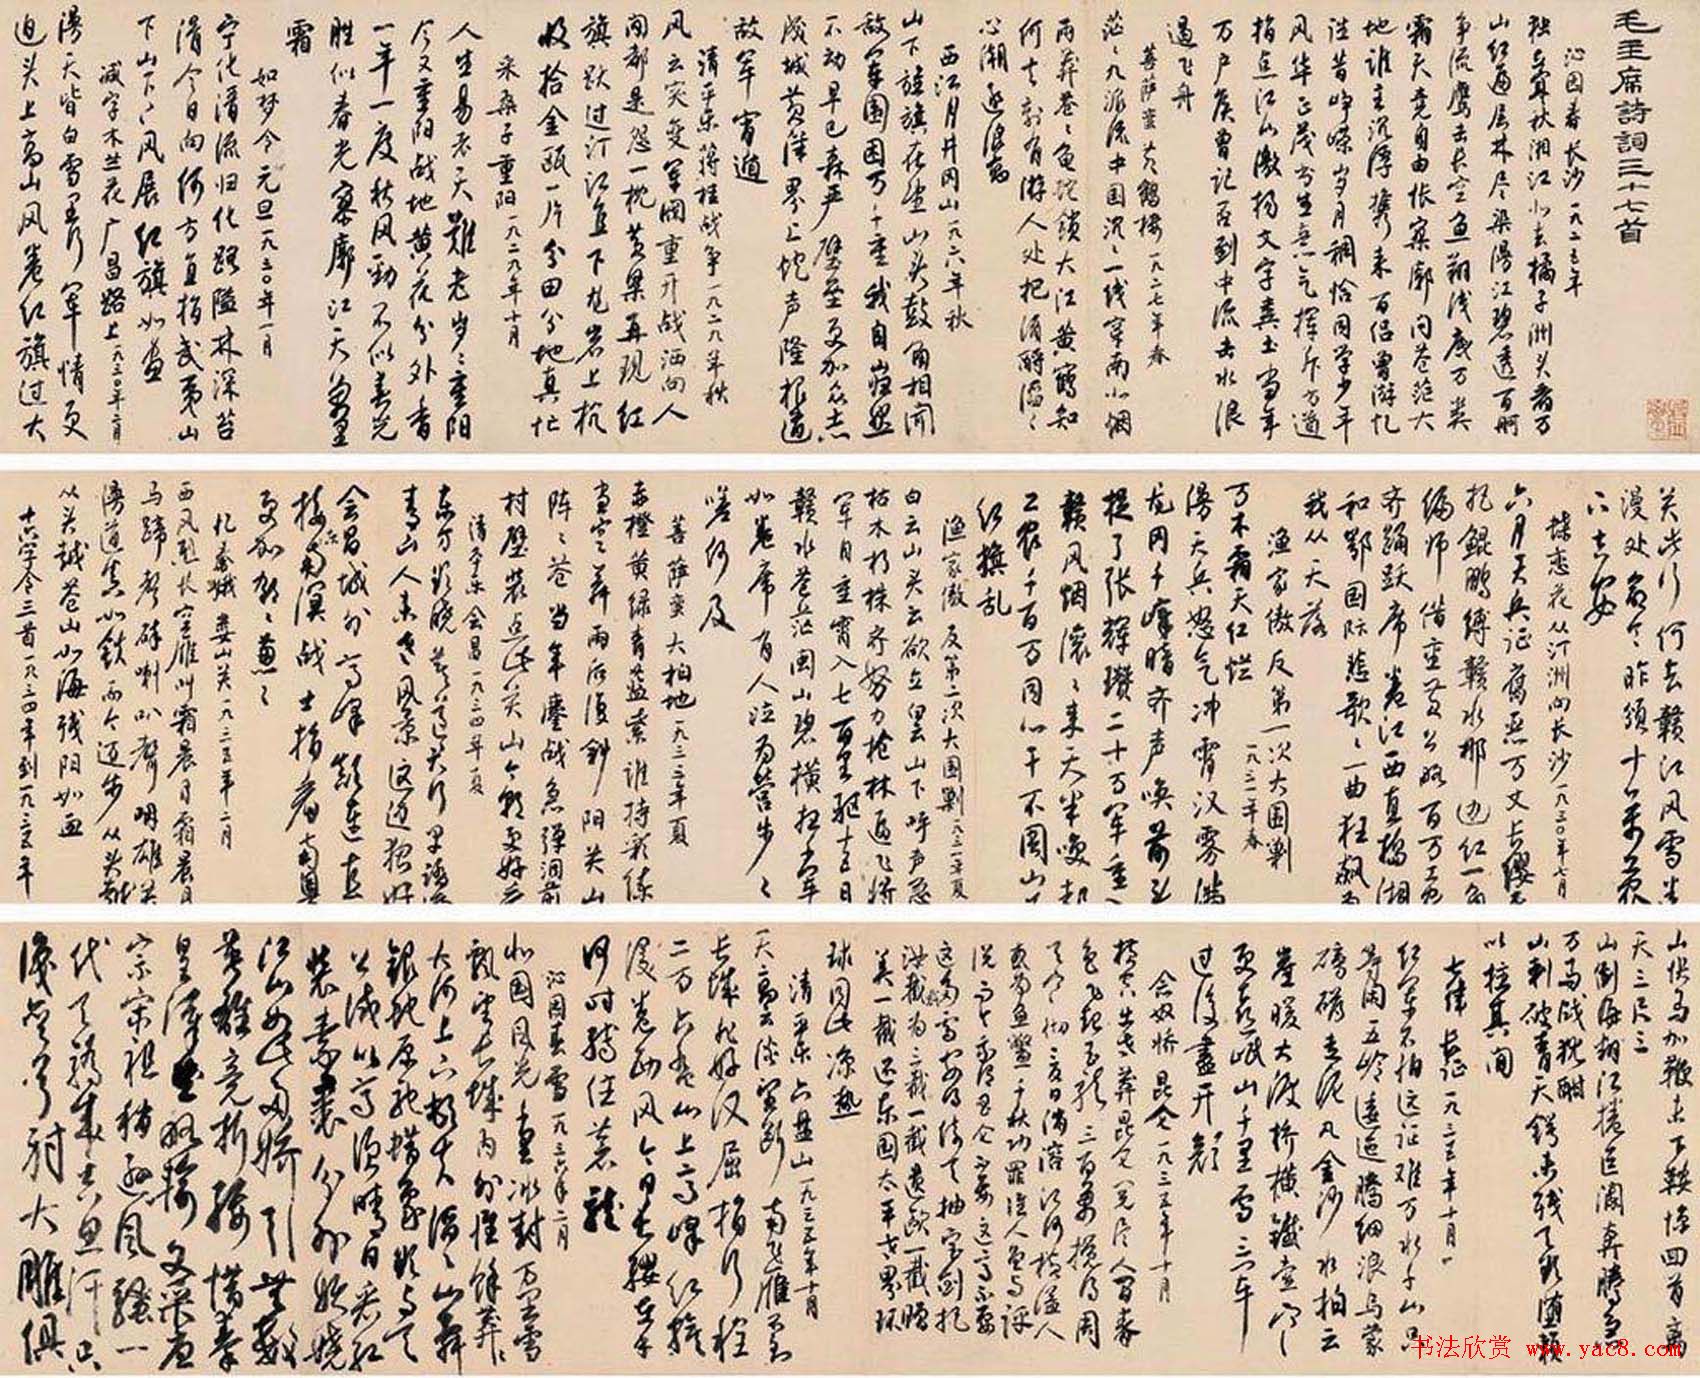 毛主席詩詞三十七首
沁园春长沙一九二五年
独立寒秋湘江北去橘子洲头看万
山红遍层林尽染漫江碧透百舸
争流鹰击长空鱼翔浅底万类
霜天竞自由怅寥廓问苍茫大
地谁主沉浮携来百侣曾游忆
往昔峥嵘岁月稠恰同学少年
风华正茂书生意气挥斥方遒
指点江山激扬文字粪土当年
万户侯曾记否到中流击水浪
遏飞舟
菩萨蛮黄鹤楼一九二七年春
茫々九派流中国沉々一线穿南北烟
雨莽苍々龟蛇锁大江黄鹤知
何去剩有游人处把酒酹滔々
心潮逐浪高
西江月井冈山一九二八年秋
山下旌旗在望山头鼓角相闻
敌军围困万千重我自岿然
不动早已森严壁垒更加众志
成城黄洋界上炮声隆报道
敌军宵遁
清平乐蒋桂战争一九二九年秋
风云突变军阀重开战洒向人
间都是怨一枕黄粱再现红
旗跃过汀江直下龙岩上杭
收拾金瓯一片分田分地真忙
采桑子重阳一九二九年十月
人生易老天难老岁々重阳
今又重阳战地黄花分外香
一年一度秋风劲不似春光
胜似春光寥廓江天万里
霜
如梦令元旦一九三〇年一月
宁化清流归化路隘林深苔
滑今日向何方直指武夷山
下山下々风展红旗如画
减字木兰花广昌路上一九三〇年二月
漫天皆白雪里行军情更
迫头上高山风卷红旗过大
关此行何去赣江风雪迷
漫处命令昨颁十万工农
下吉安
蝶恋花从汀洲向长沙一九三〇年七月
六月天兵征腐恶万丈长缨要
把鲲鹏缚赣水那边红一角
偏师借重黄公略百万工农
齐踊跃席卷江西直捣湘
和鄂国际悲歌々一曲狂飙为
我从天落
渔家傲反第一次大围剿一九三一年春
万木霜天红烂
漫天兵怒气冲霄汉雾满
龙冈千嶂暗齐声唤前头
捉了张辉瓒二十万军重入
赣风烟滚々来天半唤起
工农千百万同心干不周山下
红旗乱
渔家傲反第二次大围剿一九三一年夏
白云山头云欲立白云山下呼声急
枯木朽株齐努力枪林逼飞将
军自重霄入七百里驱十五日
赣水苍茫闽山碧横扫千军
如卷席有人泣为营步々
嗟何及
菩萨蛮大柏地一九三三年夏
赤橙黄绿青蓝紫谁持彩练
当空舞雨后复斜阳关山
阵々苍当年鏖战急弹洞前
村壁装点此关山今朝更好看
清平乐会昌一九三四年夏
东方欲晓莫道君行早踏遍
青山人未老风景这边独好
会昌城外高峰颠连直
接东溟战士指看南粤
更加郁々葱々
忆秦娥娄山关一九三五年二月
西风烈长空雁叫霜晨月霜晨月
马蹄声碎喇叭声咽雄关
漫道真如铁而今迈步从头越
从头越苍山如海残阳如血
十六字令三首一九三四年到一九三五年
山快马加鞭未下鞍惊回首离
天三尺三
山倒海翻江卷巨澜奔腾急
万马战犹酣
山刺破青天锷未残天欲堕赖
以拄其间
七律长征一九三五年十月
红军不怕远征难万水千山只
等闲五岭逶迤腾细浪乌蒙
磅礴走泥丸金沙水拍云
崖暖大渡桥横铁索寒
更喜岷山千里雪三军
过后尽开颜
念奴娇昆仑一九三五年十月
横空出世莽昆仑阅尽人间春
色飞起玉龙三百万搅得周
天寒彻夏日消溶江河横溢人
或为鱼鳖千秋功罪谁人曾与评
说而今我谓昆仑不要这高不要
这多雪安得倚天抽宝剑把
汝裁为三截一截遗欧一截赠
美一截还东国太平世界环
球同此凉热
清平乐六盘山一九三五年十月
天高云淡望断南飞雁不到
长城非好汉屈指行程
二万六盘山上高峰红旗
漫卷西风今日长缨在手
何时缚住苍龙
沁园春雪一九三六年二月
北国风光千里冰封万里雪
飘望长城内外惟馀莽々
大河上下顿失滔々山舞
银蛇原驰蜡象欲与天
公试比高须晴日看红
装素裹分外妖娆
江山如此多娇引无数
英雄竞折腰惜秦
皇汉武略输文采唐
宗宋祖稍逊风骚一
代天骄成吉思汗只
识弯弓射大雕俱
书法欣赏 www.yac8.com